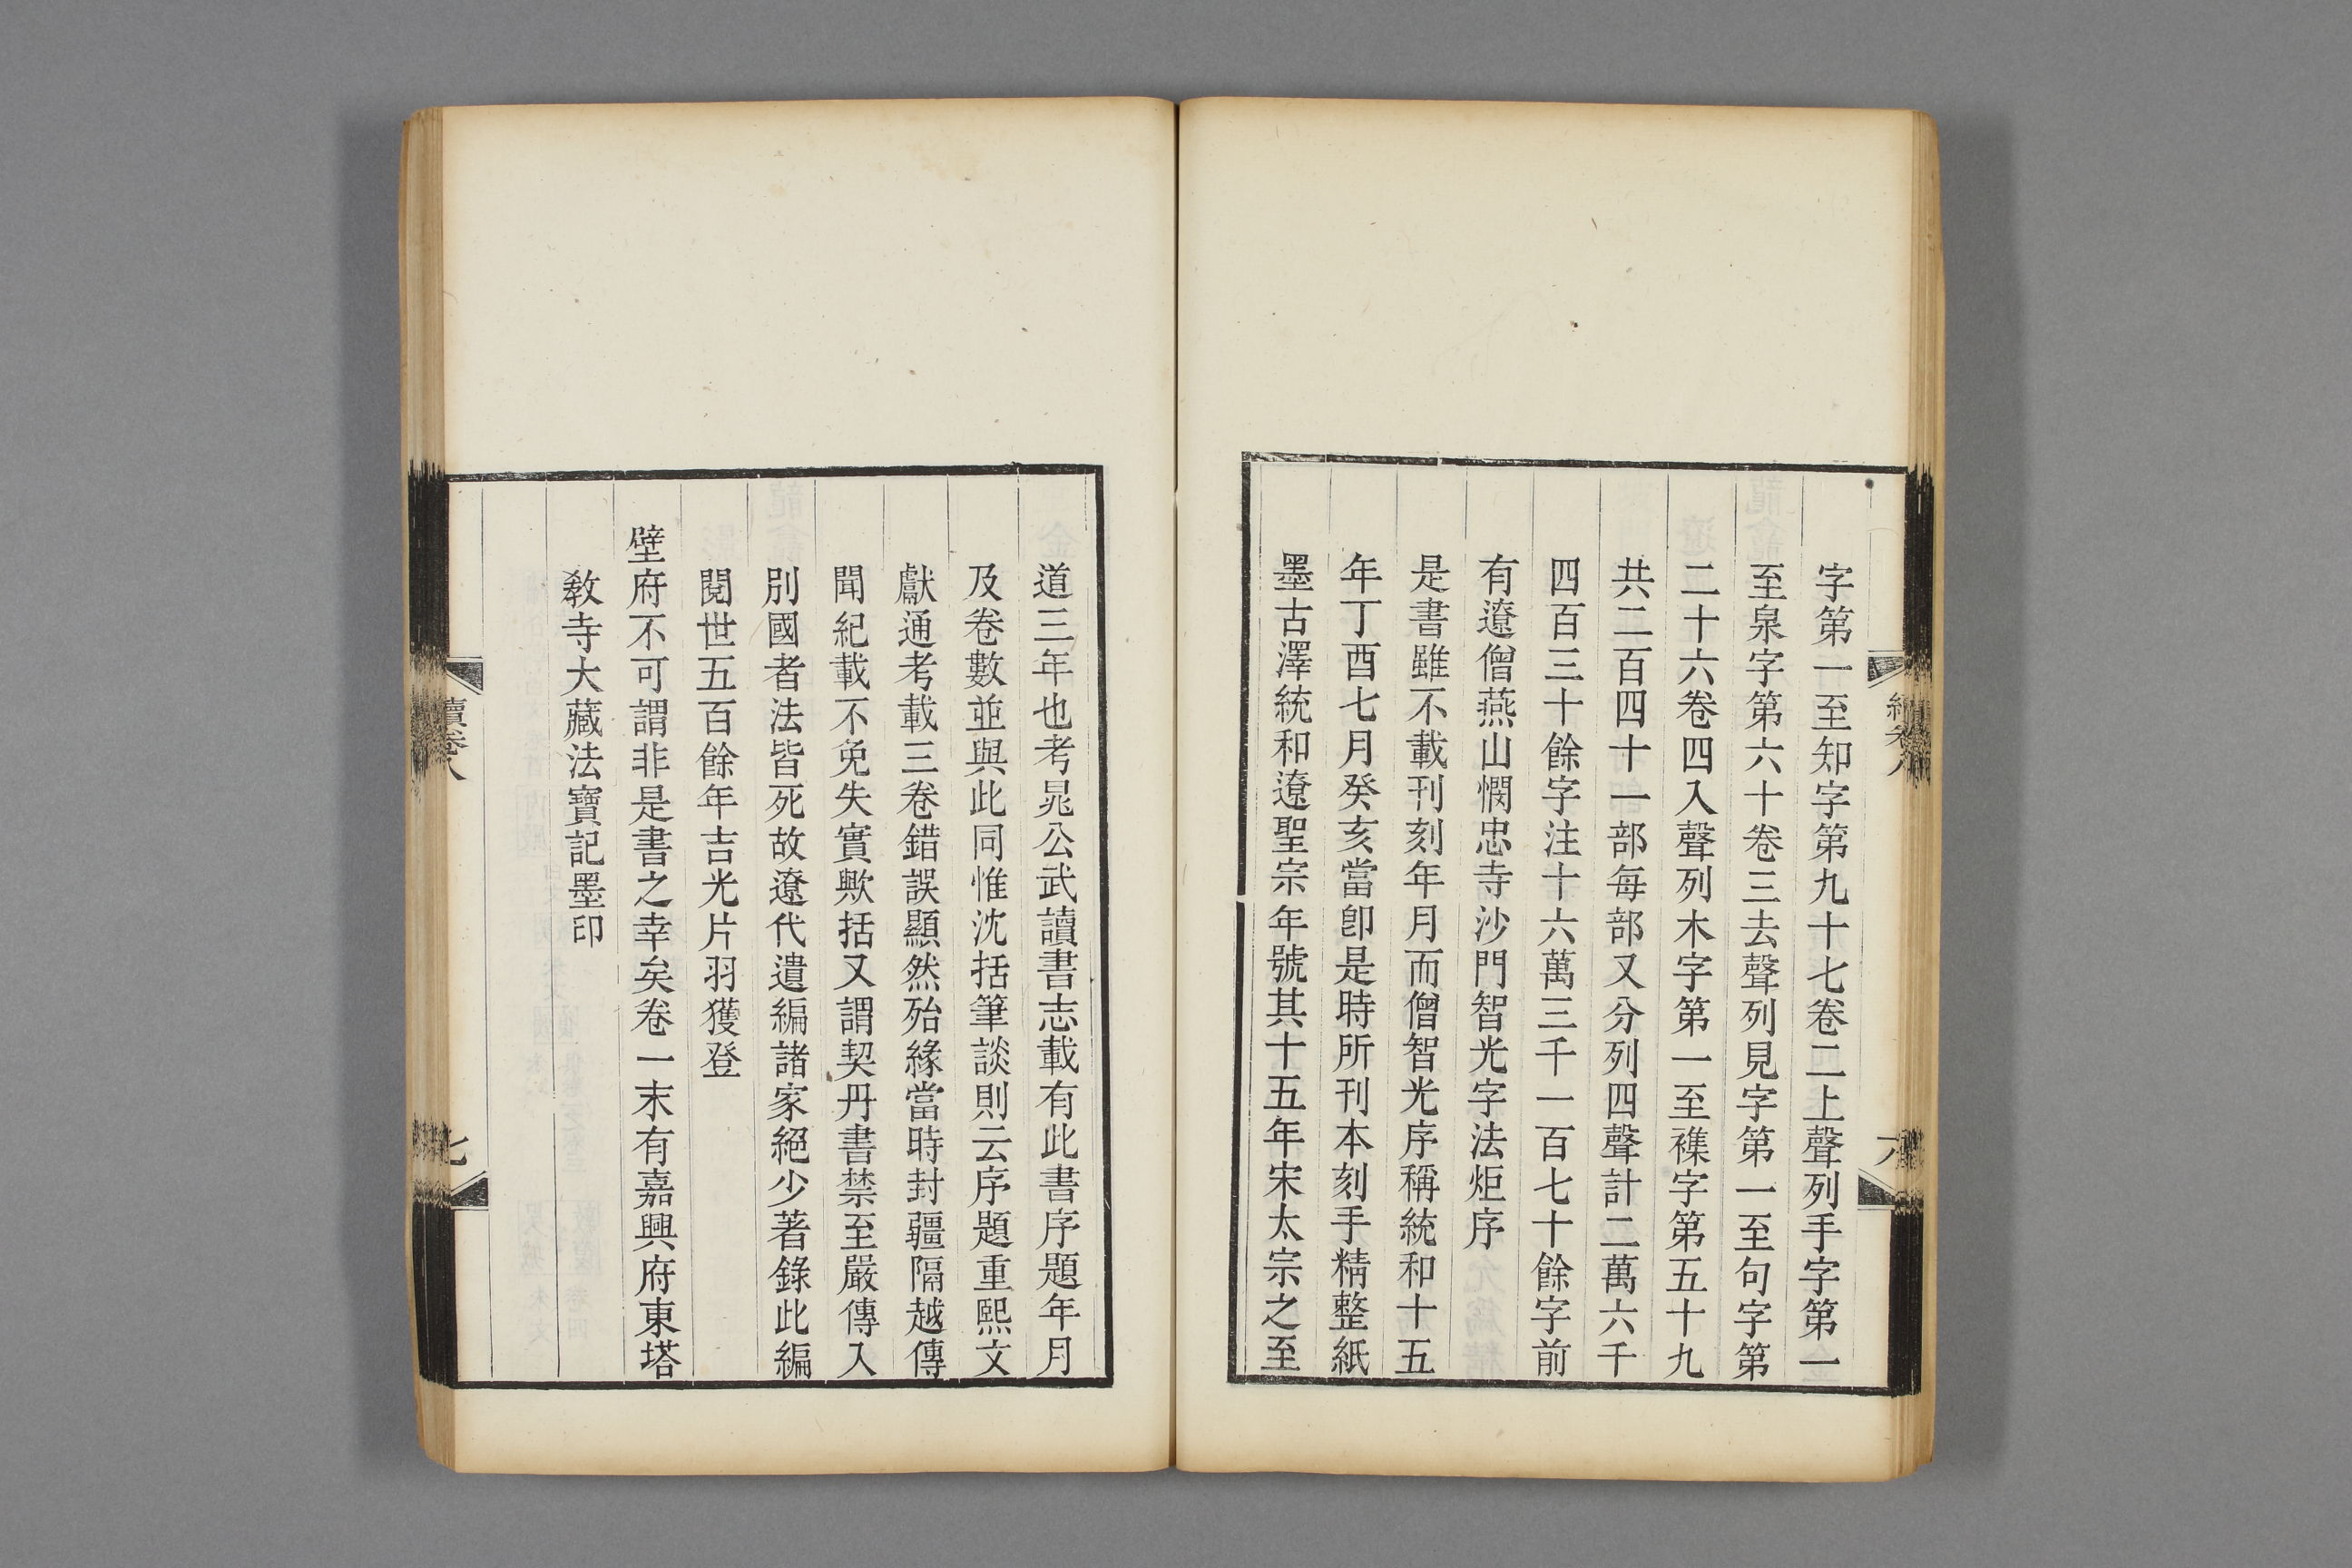 字第一至知字第九十七卷二上聲列手字第一
至㿝字第六十卷三去聲列見字第一至句字第
二十六卷四入聲列木字第一至襍字第五十九
共二百四十一部每部又分列四聲計二萬六千
四百三十餘字注十六萬三千一百七十餘字前
有遼僧燕山憫忠寺沙門智光字法炬序
是書雖不載刊刻年月而僧智光序稱統和十五
年丁酉七月癸亥當卽是時所刊本刻手精整紙
墨古澤統和遼聖宗年號其十五年宋太宗之至
續卷八
六
道三年也考晁公武讀書志載有此書序題年月
及卷數並與此同惟沈括筆談則云序題重熙文
獻通考載三卷錯誤顯然殆緣當時封疆隔越傳
聞紀載不免失實歟括又謂契丹書禁至嚴傳入
別國者法皆死故遼代遺編諸家絕少著錄此編
閱世五百餘年吉光片羽獲登
壁府不可謂非是書之幸矣卷一末有嘉興府東塔
敎寺大藏法寶記墨印
續卷八
七